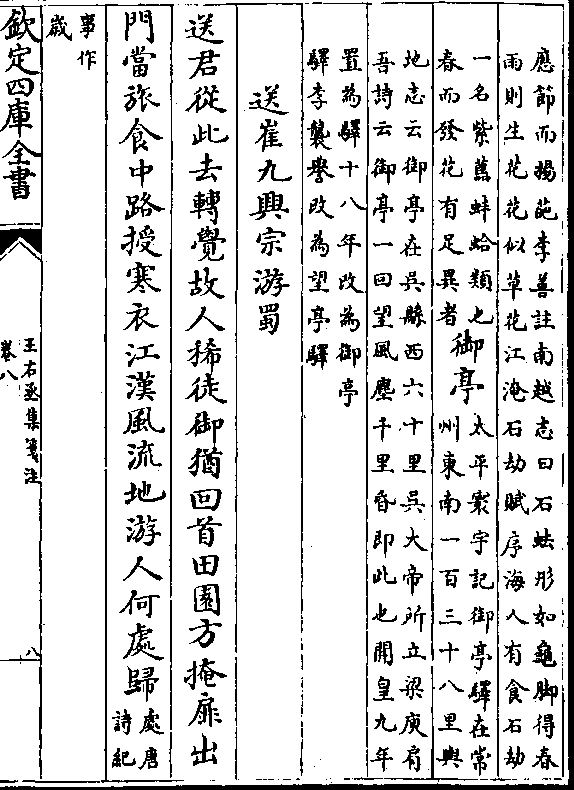 應節而揚葩李善註南越志曰石蜐形如龜脚得春
雨則生花花似草花江淹石劫賦序海人有食石劫
一名紫蚌蛤類也
春而發花有足異者
御亭
太平寰宇記御亭驛在常
州東南一百三十八里輿
地志云御亭在吳縣西六十里吳大帝所立梁庾肩
吾詩云御亭一回望風塵千里昏即此也開皇九年
置為驛十八年改為御亭
驛李襲譽改為望亭驛
送崔九興宗游蜀
送君從此去轉覺故人稀徒御猶回首田園方掩扉出
門當旅食中路授寒衣江漢風流地游人何處歸
處唐
詩紀
事作
歲
欽定四庫全書
王右丞集箋注
卷八
八